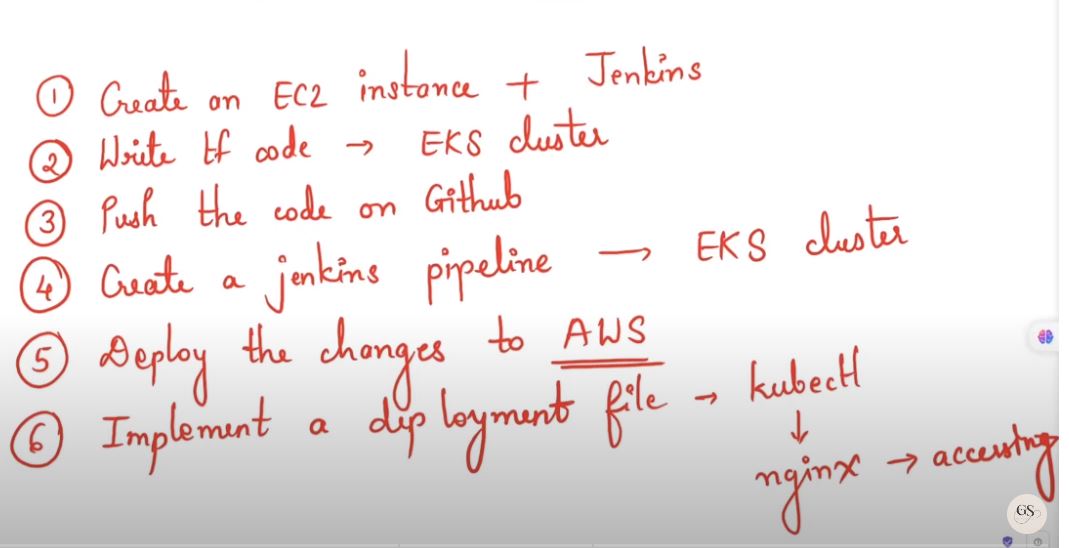 ① Create an EC2 instance + Jenkins
② Write tf code → EKS cluster
③ Push the code on Github
④ Create a jenkins pipeline → EKS cluster
⑤ Deploy the changes to AWS
⑥ Implement a deployment file → kubectl
↓
nginx → accessing
GS